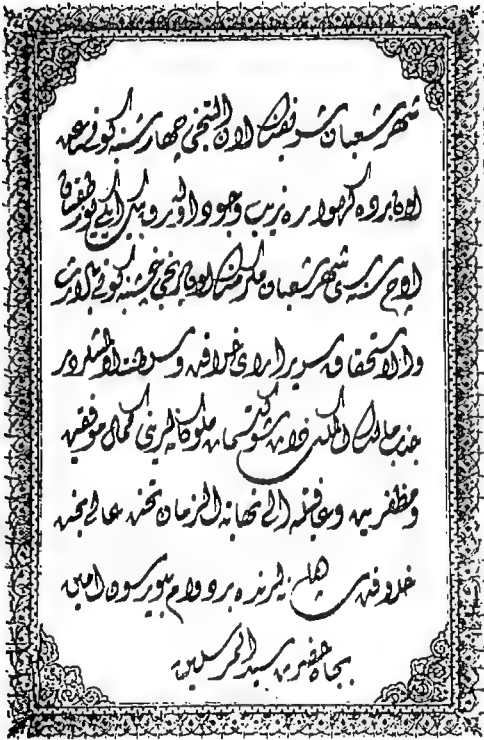 شهر شعبان شریفك اون التنجی چهارشنبه كونی ساعت
اون برده كهواره زیب وجود اولوب بیك ایكیوز طقسان
اوچ سنه سی شهر شعبان مكرمنك اون برنجی پنجشنبه كونی بالارث
والاستحقاق سریر ارای خلافت و سلطنت اولمشلردر
جناب مالك الملك ذات شوكتسمات ملوكانه لرینی كمال موفقیت
و مظفریت و عافیتله الی نهایة الزمان تخت عالی بخت
خلافتپناهیلرنده بر دوام بیورسون امین
بجاه حضرت سید المرسلین